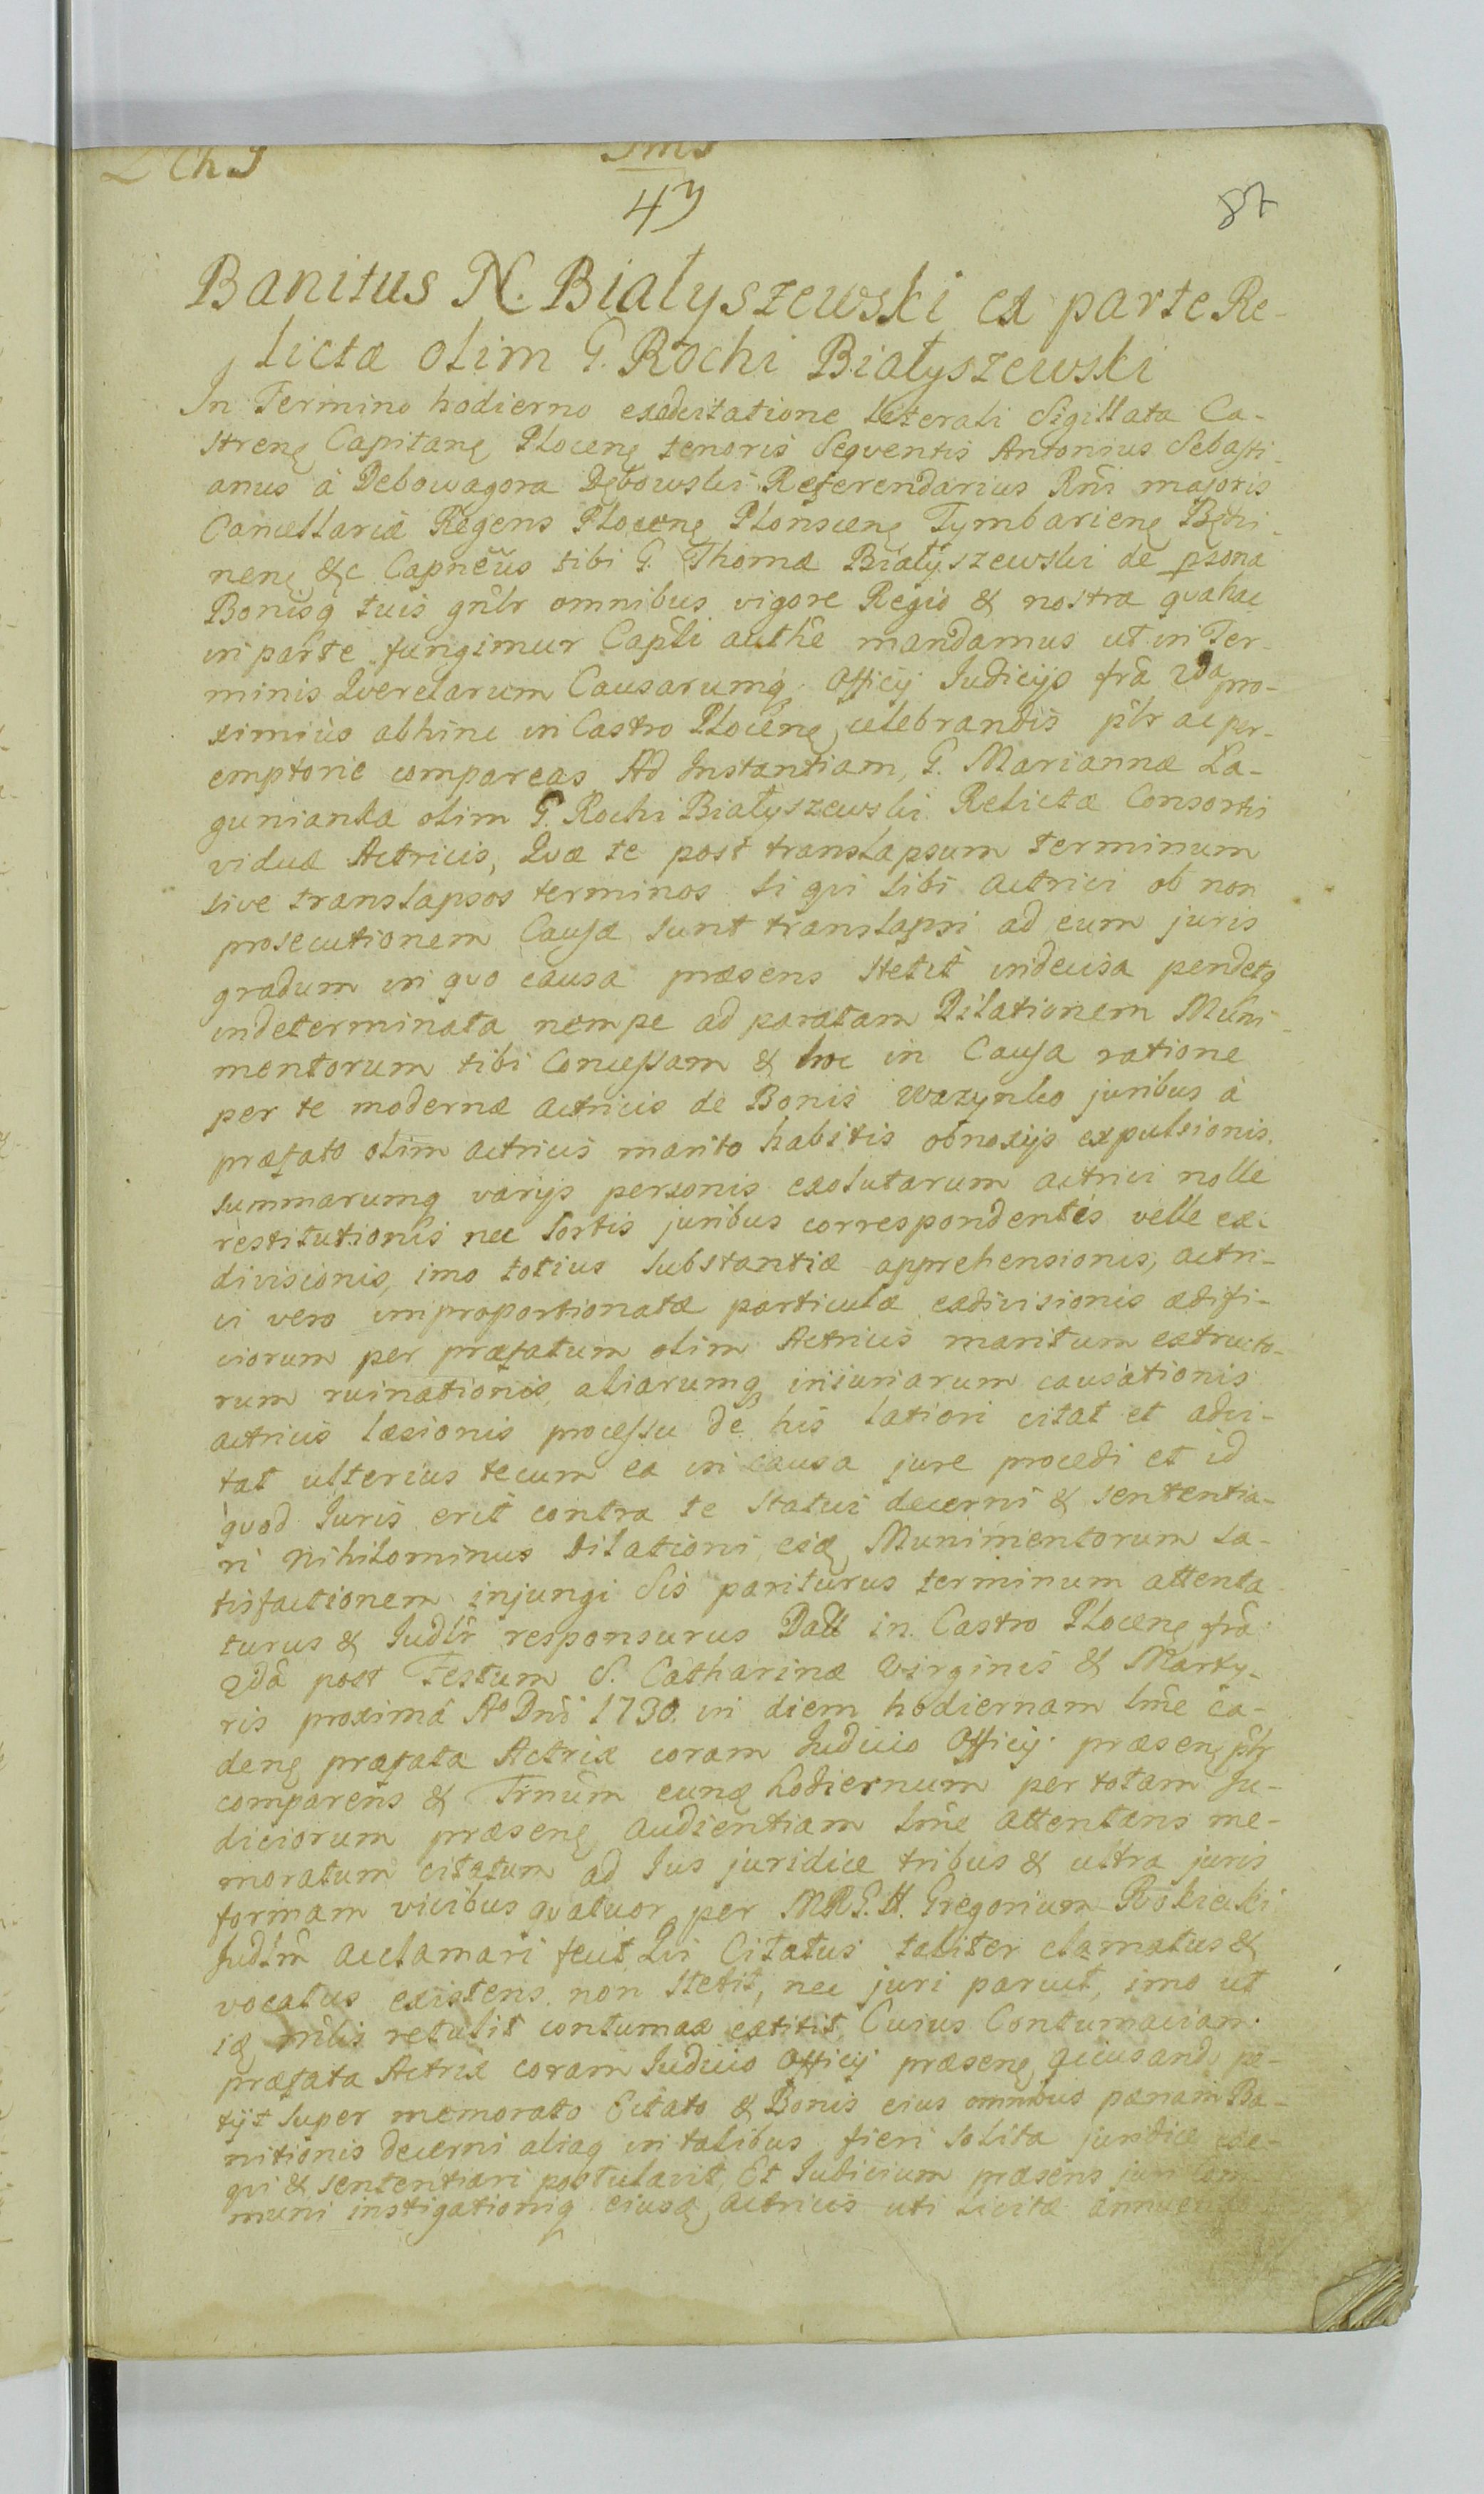 L Ch J
Jms
43
87
Banitus N. Białyszewski ex parte Re-
lictæ olim G. Rochi Białyszewski
In Termino hodierno ex citatione literali Sigillata Ca-
strenę Capitanę Plocenę tenoris Seqventis Antonius Sebasti-
anus à Debowagora Dębowski Referendarius Rñi majoris
Cancellariæ Regens Plocenę Plonscenę Tymbarienę
nenę &c Capnëus tibi G. Thomæ Białyszewski de psona
Bonisq tuis gnlr omnibus vigore Regio & nostra qva hac
in parte fungimur Capli authê mandamus ut in Ter-
minis Qverelarum Causarumq Officij Iudicijs frâ 2da pro-
ximius abhinc in Castro Plocenę celebrandis plr ac per-
emptorie compareas Ad Instantiam G. Mariannæ La-
gunianka olim G. Rochi Białyszewski Relictæ Consortis
viduæ Actricis, Qvæ te post translapsum terminum
sive translapsos terminos si qvi sibi Actrici ob non
prosecutionem Causæ sunt translapsi ad eum juris
gradum in qvo causa præsens stetit indecisa pendetq
indeterminata nempe ad paratam Dilationem Muni-
mentorum tibi Concessam & hoc in Causa ratione
per te modernæ Actricis de Bonis Wazynko juribus à
præfato olim actricis marito habitis obnoxijs expulsionis,
summarumq varijs personis exolutarum actrici nolle
restitutionis nec sortis juribus correspondentis velle ex-
divisionis, imo totius substantiæ apprehensionis, actri-
ci vero improportionatæ particulæ exdivisionis ædifi-
ciorum per præfatum olim Actricis maritum extructo-
rum ruinationis, aliarumq iniuriarum causationis
actricis læsionis processu de his latiori citat et adci-
tat ulterius tecum ea in causa jure procedi et id
qvod Iuris erit contra te statui decerni & sententia-
ri nihilominus Dilationi eię Munimentorum sa-
tisfactionem injungi Sis pariturus terminum attenta-
turus & Iudlr responsurus Datt in Castro Plocenę frâ
2dâ post Festum S. Catharinæ Virginis & Marty-
ris proximâ Ao Dni 1730. in diem hodiernam lmê ca-
denę præfata Actrix coram Iudicio Officij præsenę plr
comparens & Trnûm eunę hodiernum per totam Ju-
diciorum præsenę audientiam lmê attentans me-
moratum citatum ad Ius juridice tribus & ultra juris
formam vicibus qvatuor per M G. H. Gregorium
Iudlm acclamari fecit Qvi Citatus taliter clamatus &
vocatus existens non stetit, nec juri paruit, imo ut
ię mlis retulit contumax extitit, Cuius Contumaciam
præfata Actrix coram Iudicio Officij præsenę accusando pe-
tijt super memorato Citato & Bonis eius omnibus pænam Ba-
nitionis decerni aliaq in talibus fieri solita juridice exe-
qvi & sententiari postulavit, Et Iudicium præsens juri Com-
muni instigationiq eiusę Actricis uti licitæ annuendo